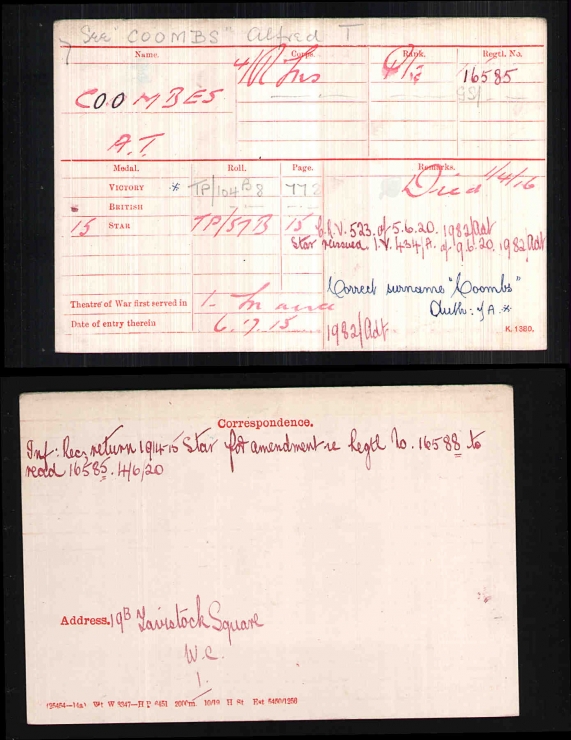 See "COOMBS" Alfred T
Name. Corps. Rank. Regtl. No.
COOMBES 4/R Fus Pte 16585
A.T. GS/
Medal. Roll. Page. Remarks.
VICTORY * TP/104 B 8 772 Died 1/4/16
BRITISH
15 STAR TP/57 B 15 C.R.V. 523. of 5.6.20. 1982/Adt
Star reissued. I.V. 434/A. of 9.6.20. 1982/Adt
Correct surname "Coombs"
Auth: *
Theatre of War first served in 1. France
Date of entry therein 6.7.15 1982/Adt
K. 1380.
Correspondence.
Inf: Rec, return 1914-15 Star for amendment re Regtl No. 16588 to
read 16585. 14/6/20
Address. 19B Tavistock Square
W.C.
1.
W 5347—H P 6451 2000m. 10/19 H St